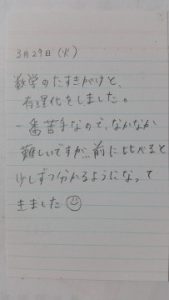 3月29日(火)
数学のたすきがけと、
有理化をしました。
一番苦手なので、なかなか
難しいですが、前に比べると
少しずつ分かるようになって
きました